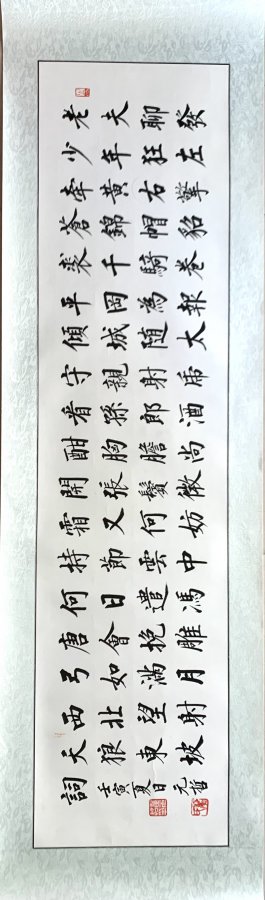 老夫聊發
少年狂左
牽黃右擎
蒼錦帽貂
裘千騎卷
平岡為報
傾城随太
守親射虎
看孫郎酒
酣胸膽尚
開張鬢微
霜又何妨
持節雲中
何日遣馮
唐會挽雕
弓如滿月
西北望射
天狼東坡
詞
壬寅夏日
元哲